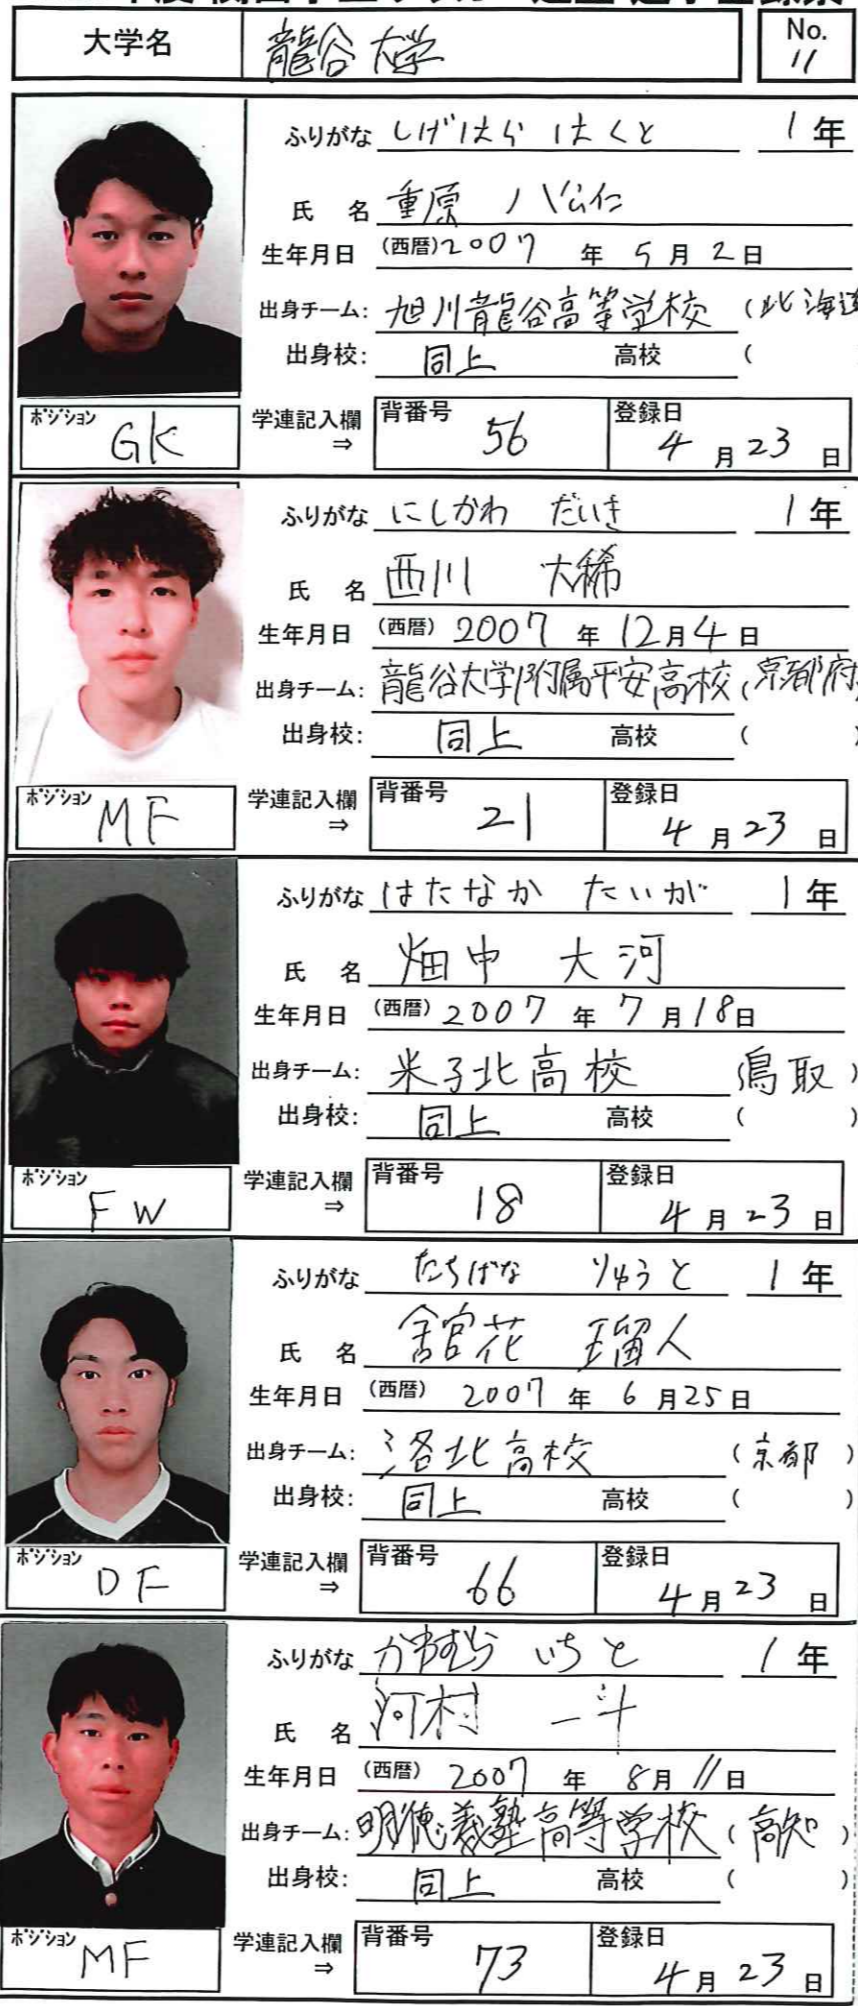 大学名 龍谷大学 No. 11
ふりがな しげはら はくと 1年
氏 名 重原 八公仁
生年月日 (西暦)2007 年 5 月 2 日
出身チーム: 旭川龍谷高等学校 (北海道
出身校: 同上 高校 (
ポジション GK 学連記入欄 ⇒ 背番号 56 登録日 4 月 23 日
ふりがな にしかわ だいき 1年
氏 名 西川 大稀
生年月日 (西暦) 2007 年 12月 4 日
出身チーム: 龍谷大学附属平安高校 (京都府)
出身校: 同上 高校 ( )
ポジション MF 学連記入欄 ⇒ 背番号 21 登録日 4 月 23 日
ふりがな はたなか たいが 1年
氏 名 畑中 大河
生年月日 (西暦) 2007 年 7 月 18日
出身チーム: 米子北高校 (鳥取)
出身校: 同上 高校 ( )
ポジション FW 学連記入欄 ⇒ 背番号 18 登録日 4 月 23 日
ふりがな たちばな りゅうと 1年
氏 名 舘花 瑠人
生年月日 (西暦) 2007 年 6 月25日
出身チーム: 洛北高校 (京都)
出身校: 同上 高校 ( )
ポジション DF 学連記入欄 ⇒ 背番号 66 登録日 4 月 23 日
ふりがな かわむら いちと 1年
氏 名 河村 一斗
生年月日 (西暦) 2007 年 8月 11日
出身チーム: 明徳義塾高等学校 (高知)
出身校: 同上 高校 ( )
ポジション MF 学連記入欄 ⇒ 背番号 73 登録日 4 月 23 日